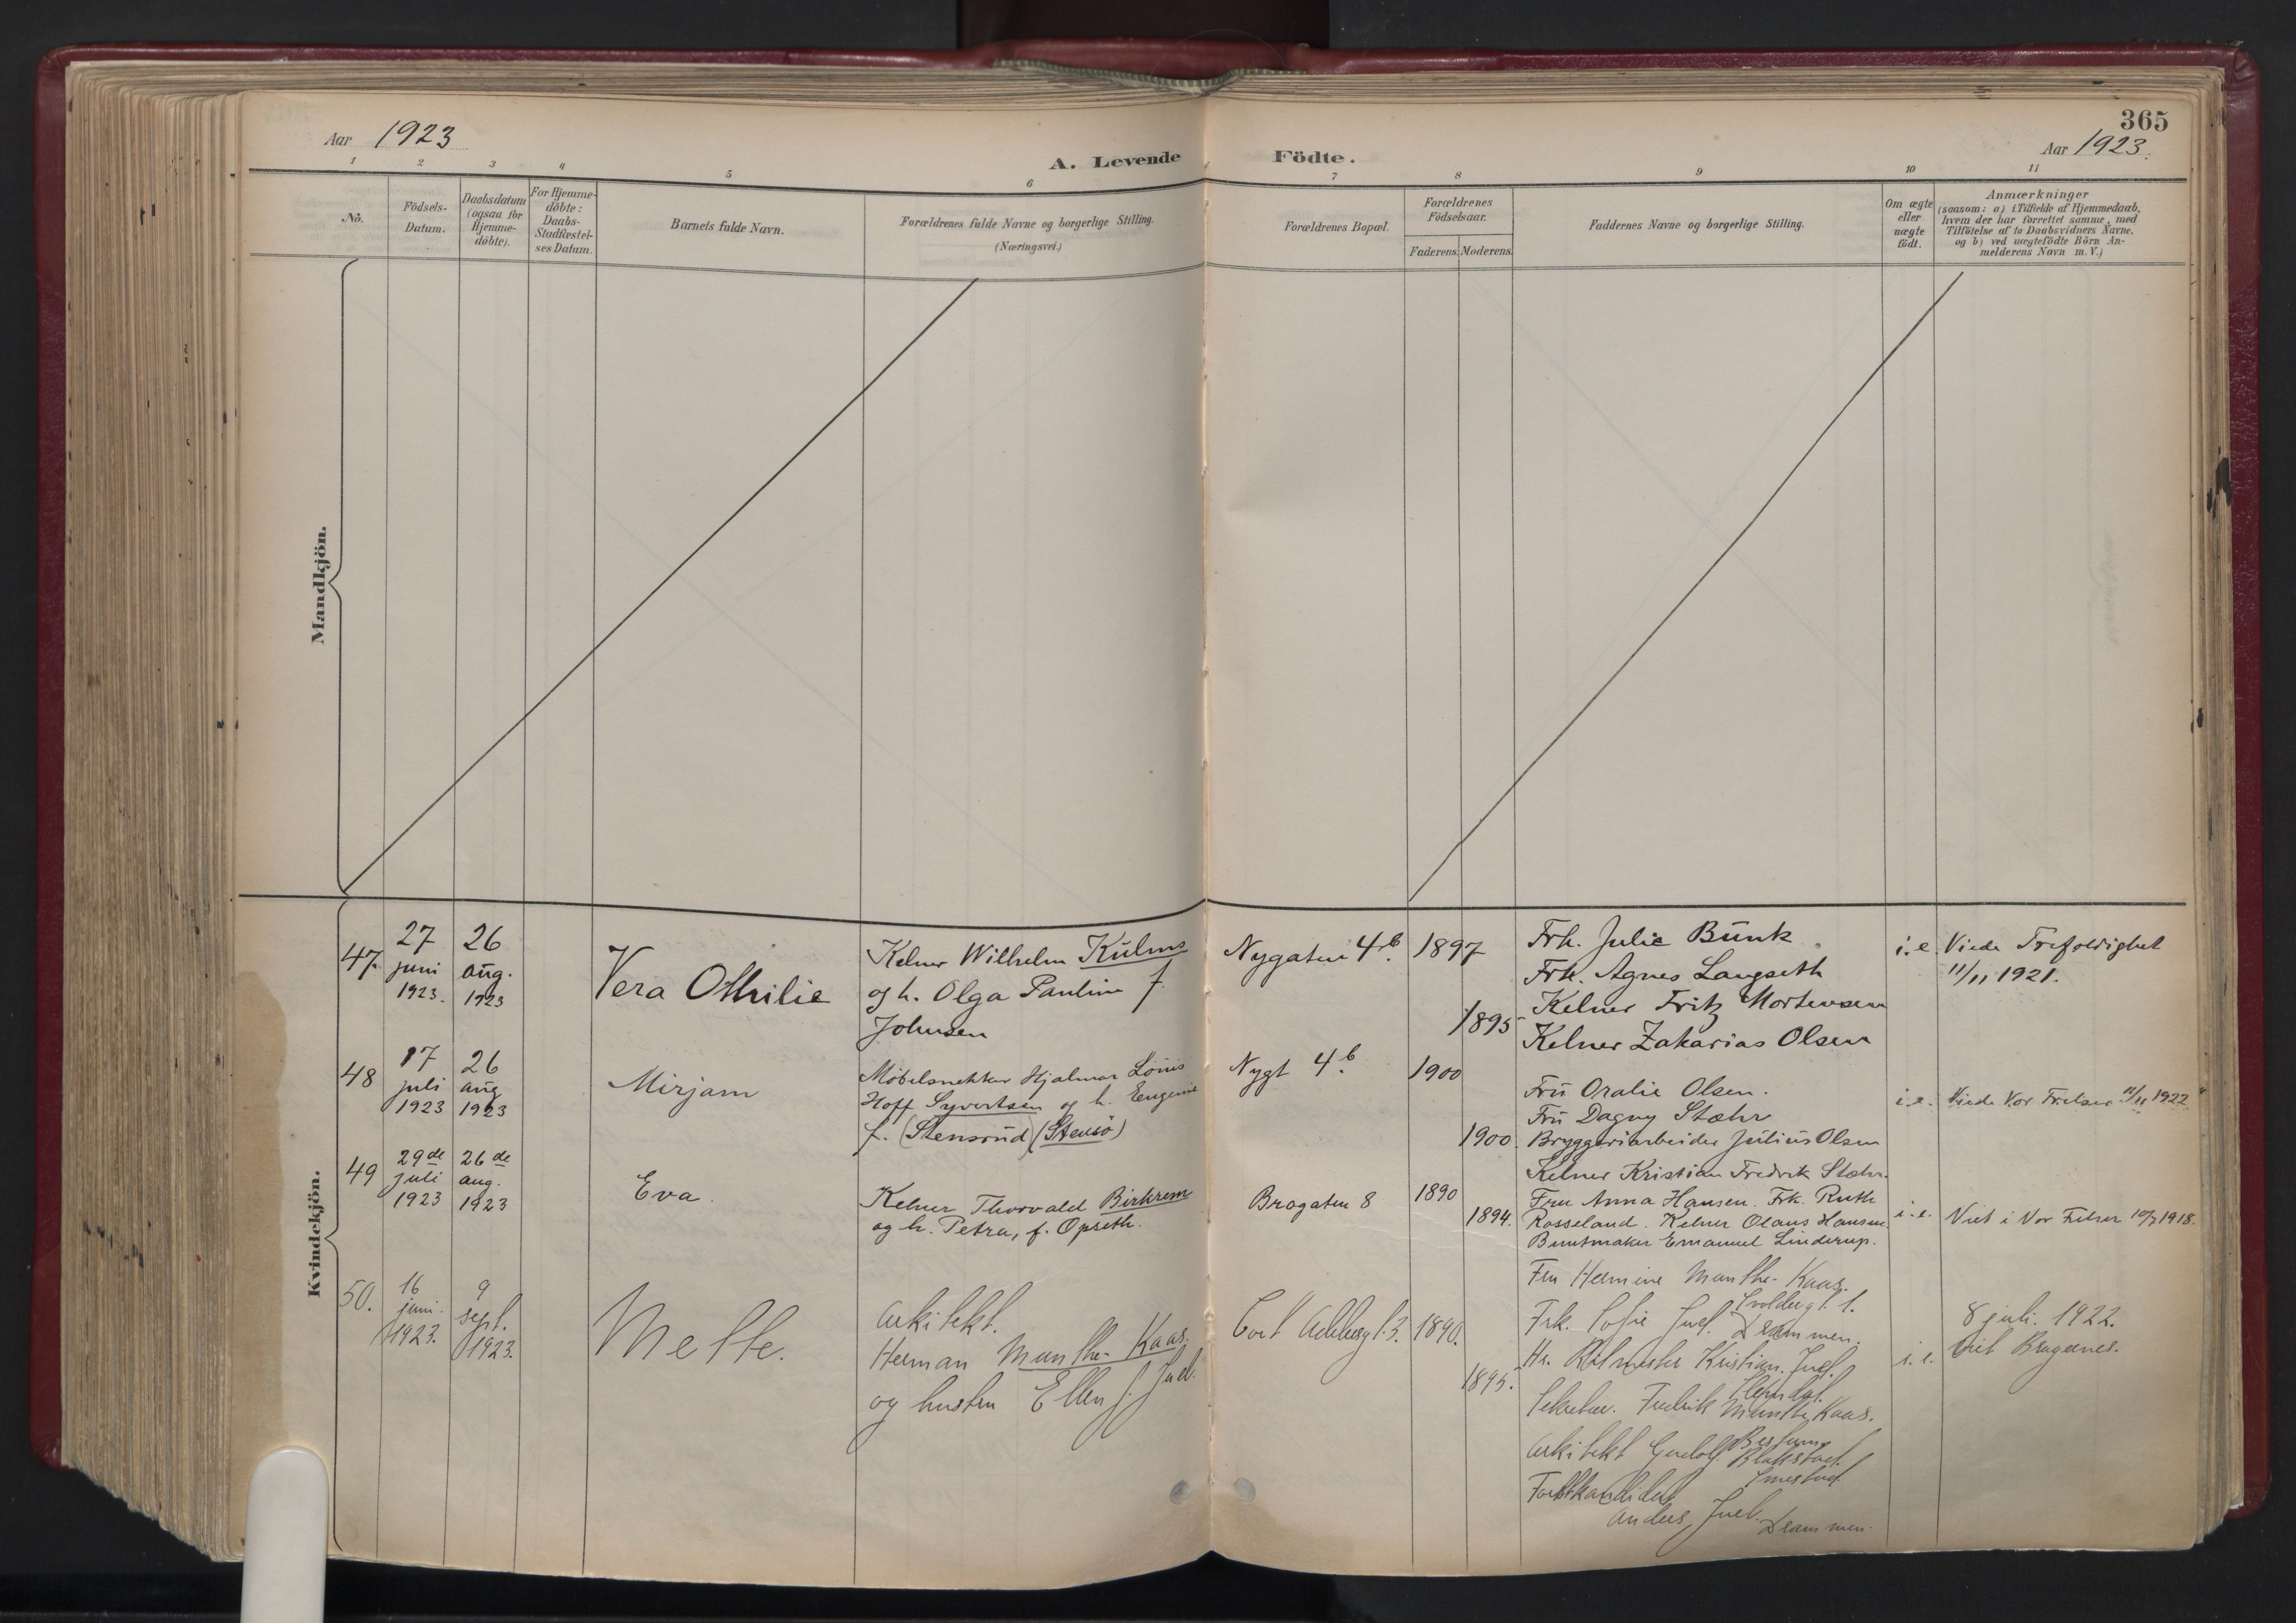 365
Aar 1923
Aar 1923.
A. Levende Födte.
1 2 3 4 5 6 7 8 9 10 11
No.
Födsels-
Datum.
Daabsdatum
(ogsaa for
Hjemme-
döbte).
For Hjemme-
döbte:
Daabs-
Stadfæstel-
ses Datum.
Barnets fulde Navn.
Forældrenes fulde Navne og borgerlige Stilling.
(Næringsvei.)
Forældrenes Bopæl.
Forældrenes
Födselsaar.
Faderens. Moderens.
Faddernes Navne og borgerlige Stilling.
Om ægte
eller
uægte
födt.
Anmærkninger
(saasom: a) i Tilfælde af Hjemmedaab,
hvem der har forrettet samme, med
Tilföielse af to Daabsvidners Navne,
og b) ved uægtefödte Börn An-
melderens Navn m. V.)
Mandkjön.
Kvindekjön.
47.
27
juni
1923.
26
aug.
1923
Vera Othilie
Kelner Wilhelm Kulms
og h. Olga Pauline f.
Johnsen
Nygaten 4b.
1897
1895
Frk. Julie Bunk
Frk. Agnes Langseth
Kelner Fritz Mortensen
Kelner Zakarias Olsen
i. e.
Viede Trefoldighet
11/11 1921.
48
17
juli
1923
26
aug
1923
Mirjam
Møbelsnekker Hjalmar Louis
Hoff Syvertsen og h. Eugenie
f. (Stensrud) (Stensø)
Nygt 4b.
1900
1900.
Fru Oralie Olsen.
Fru Dagny Stæhr
Bryggeriarbeider Julius Olsen
Kelner Kristian Fredrik Stæhr.
i. e.
Viede Vor Frelser 1922
49
29de
juli
1923
26de
aug.
1923
Eva.
Kelner Thorvald Birkrem
og h. Petra, f. Opseth.
Brogaten 8
1890
1894.
Fru Anna Hansen. Frk. Ruth
Rosseland. Kelner Olaus Hansen
Buntmaker Emanuel Linderup.
i. e.
Viet i Vor Frelser 10/7 1918.
50.
16
juni.
1923.
9
sept.
1923.
Mette.
Arkitekt.
Herman Munthe-Kaas.
og hustru Ellen f. Juel.
Cort Adelersgt. 3.
1890.
1895.
Fru Hermine Munthe-Kaas.
Svoldergt. 1.
Frk. Sofie Juel. Drammen.
Hr. Ritmester Kristian Juel.
Slemdal.
Sekretær. Fredrik Munthe Kaas.
Bestum.
Arkitekt Gudolf Blakstad.
Smestad
Forstkandidat
Anders Juel. Drammen.
i. e.
8 juli. 1922.
Viet Bragernes.